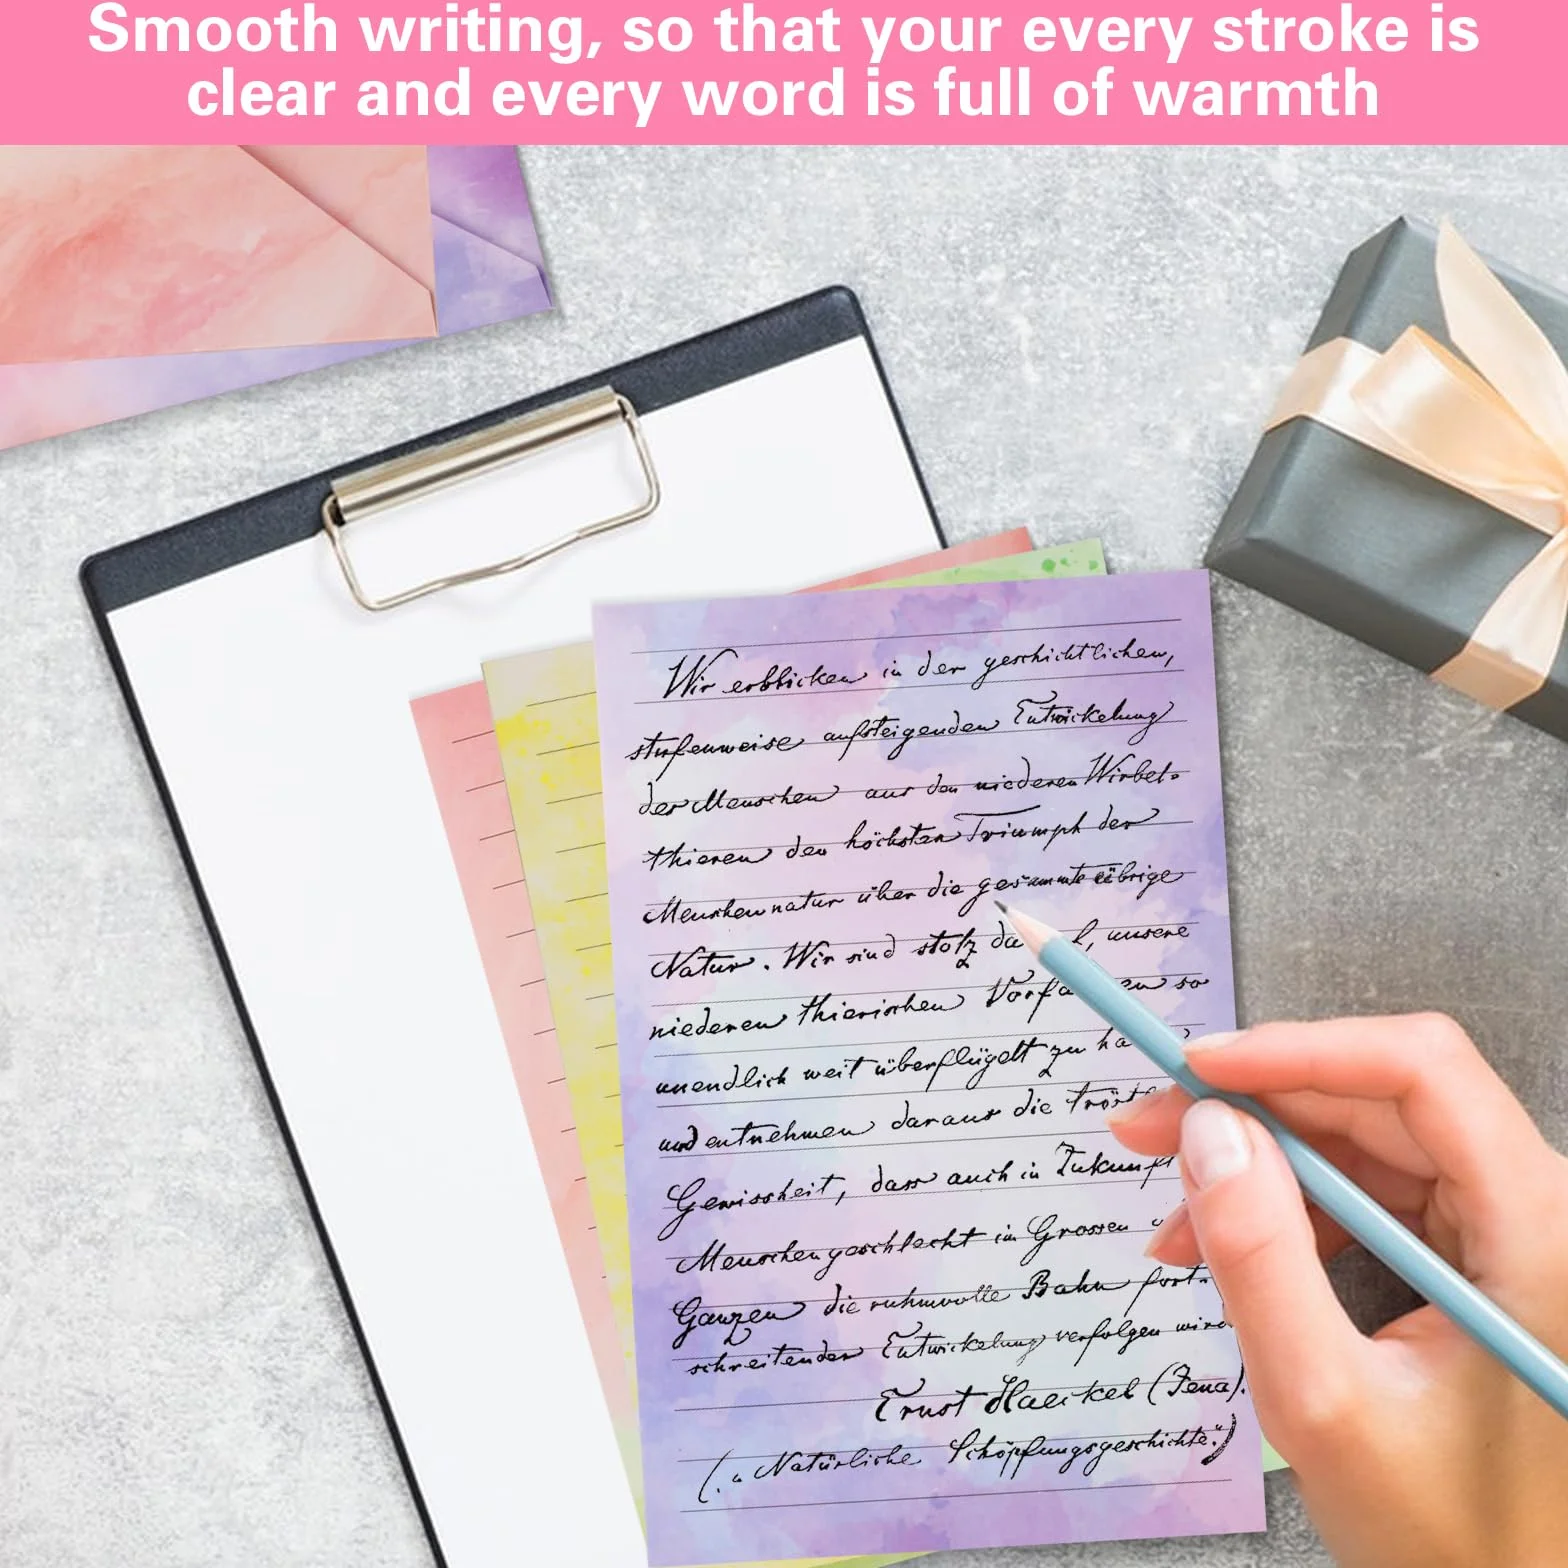 Smooth writing, so that your every stroke is
clear and every word is full of warmth
Wir erblicken in der geschichtlichen,
stufenweise aufsteigenden Entwickelung
der Menschen aus den niederen Wirbel-
thieren den höchsten Triumph der
Menschennatur über die gesammte übrige
Natur. Wir sind stolz unsere
niederen thierischen so
unendlich weit überflügelt zu
und entnehmen daraus die
Gewissheit, dass auch in
Menschengeschlecht im Grossen
Ganzen die ruhmvolle Bahn fort-
schreitender Entwickelung verfolgen wird
Ernst Haeckel (Jena).
(„Natürliche Schöpfungsgeschichte.")